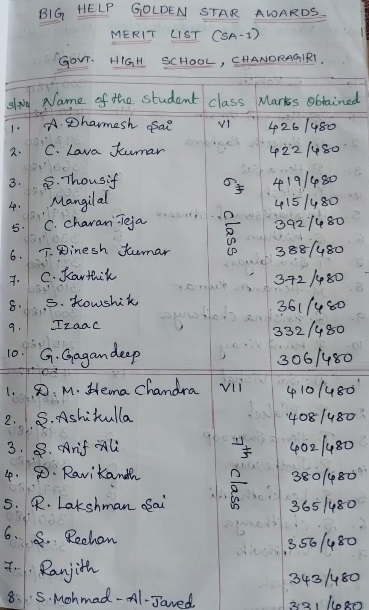 BIG HELP GOLDEN STAR AWARDS
MERIT LIST (SA-1)
GOVT. HIGH SCHOOL, CHANDRAGIRI.
Sl.No Name of the student class Marks Obtained
1. A. Dharmesh Sai VI 426/480
2. C. Lava Kumar 422/480
3. S. Thousif 6th class 419/480
4. Mangilal 415/480
5. C. charan Teja 392/480
6. T. Dinesh Kumar 388/480
7. C. Karthik 372/480
8. S. Kowshik 361/480
9. Izaac 332/480
10. G. Gagandeep 306/480
1. D. M. Hema Chandra VII 410/480
2. S. Ashikulla 408/480
3. S. Arif Ali 7th class 402/480
4. D. Ravikanth 380/480
5. R. Lakshman Sai 365/480
6. S. Reehan 356/480
7. Ranjith 343/480
8. S. Mohmad-Al-Javed 331/480